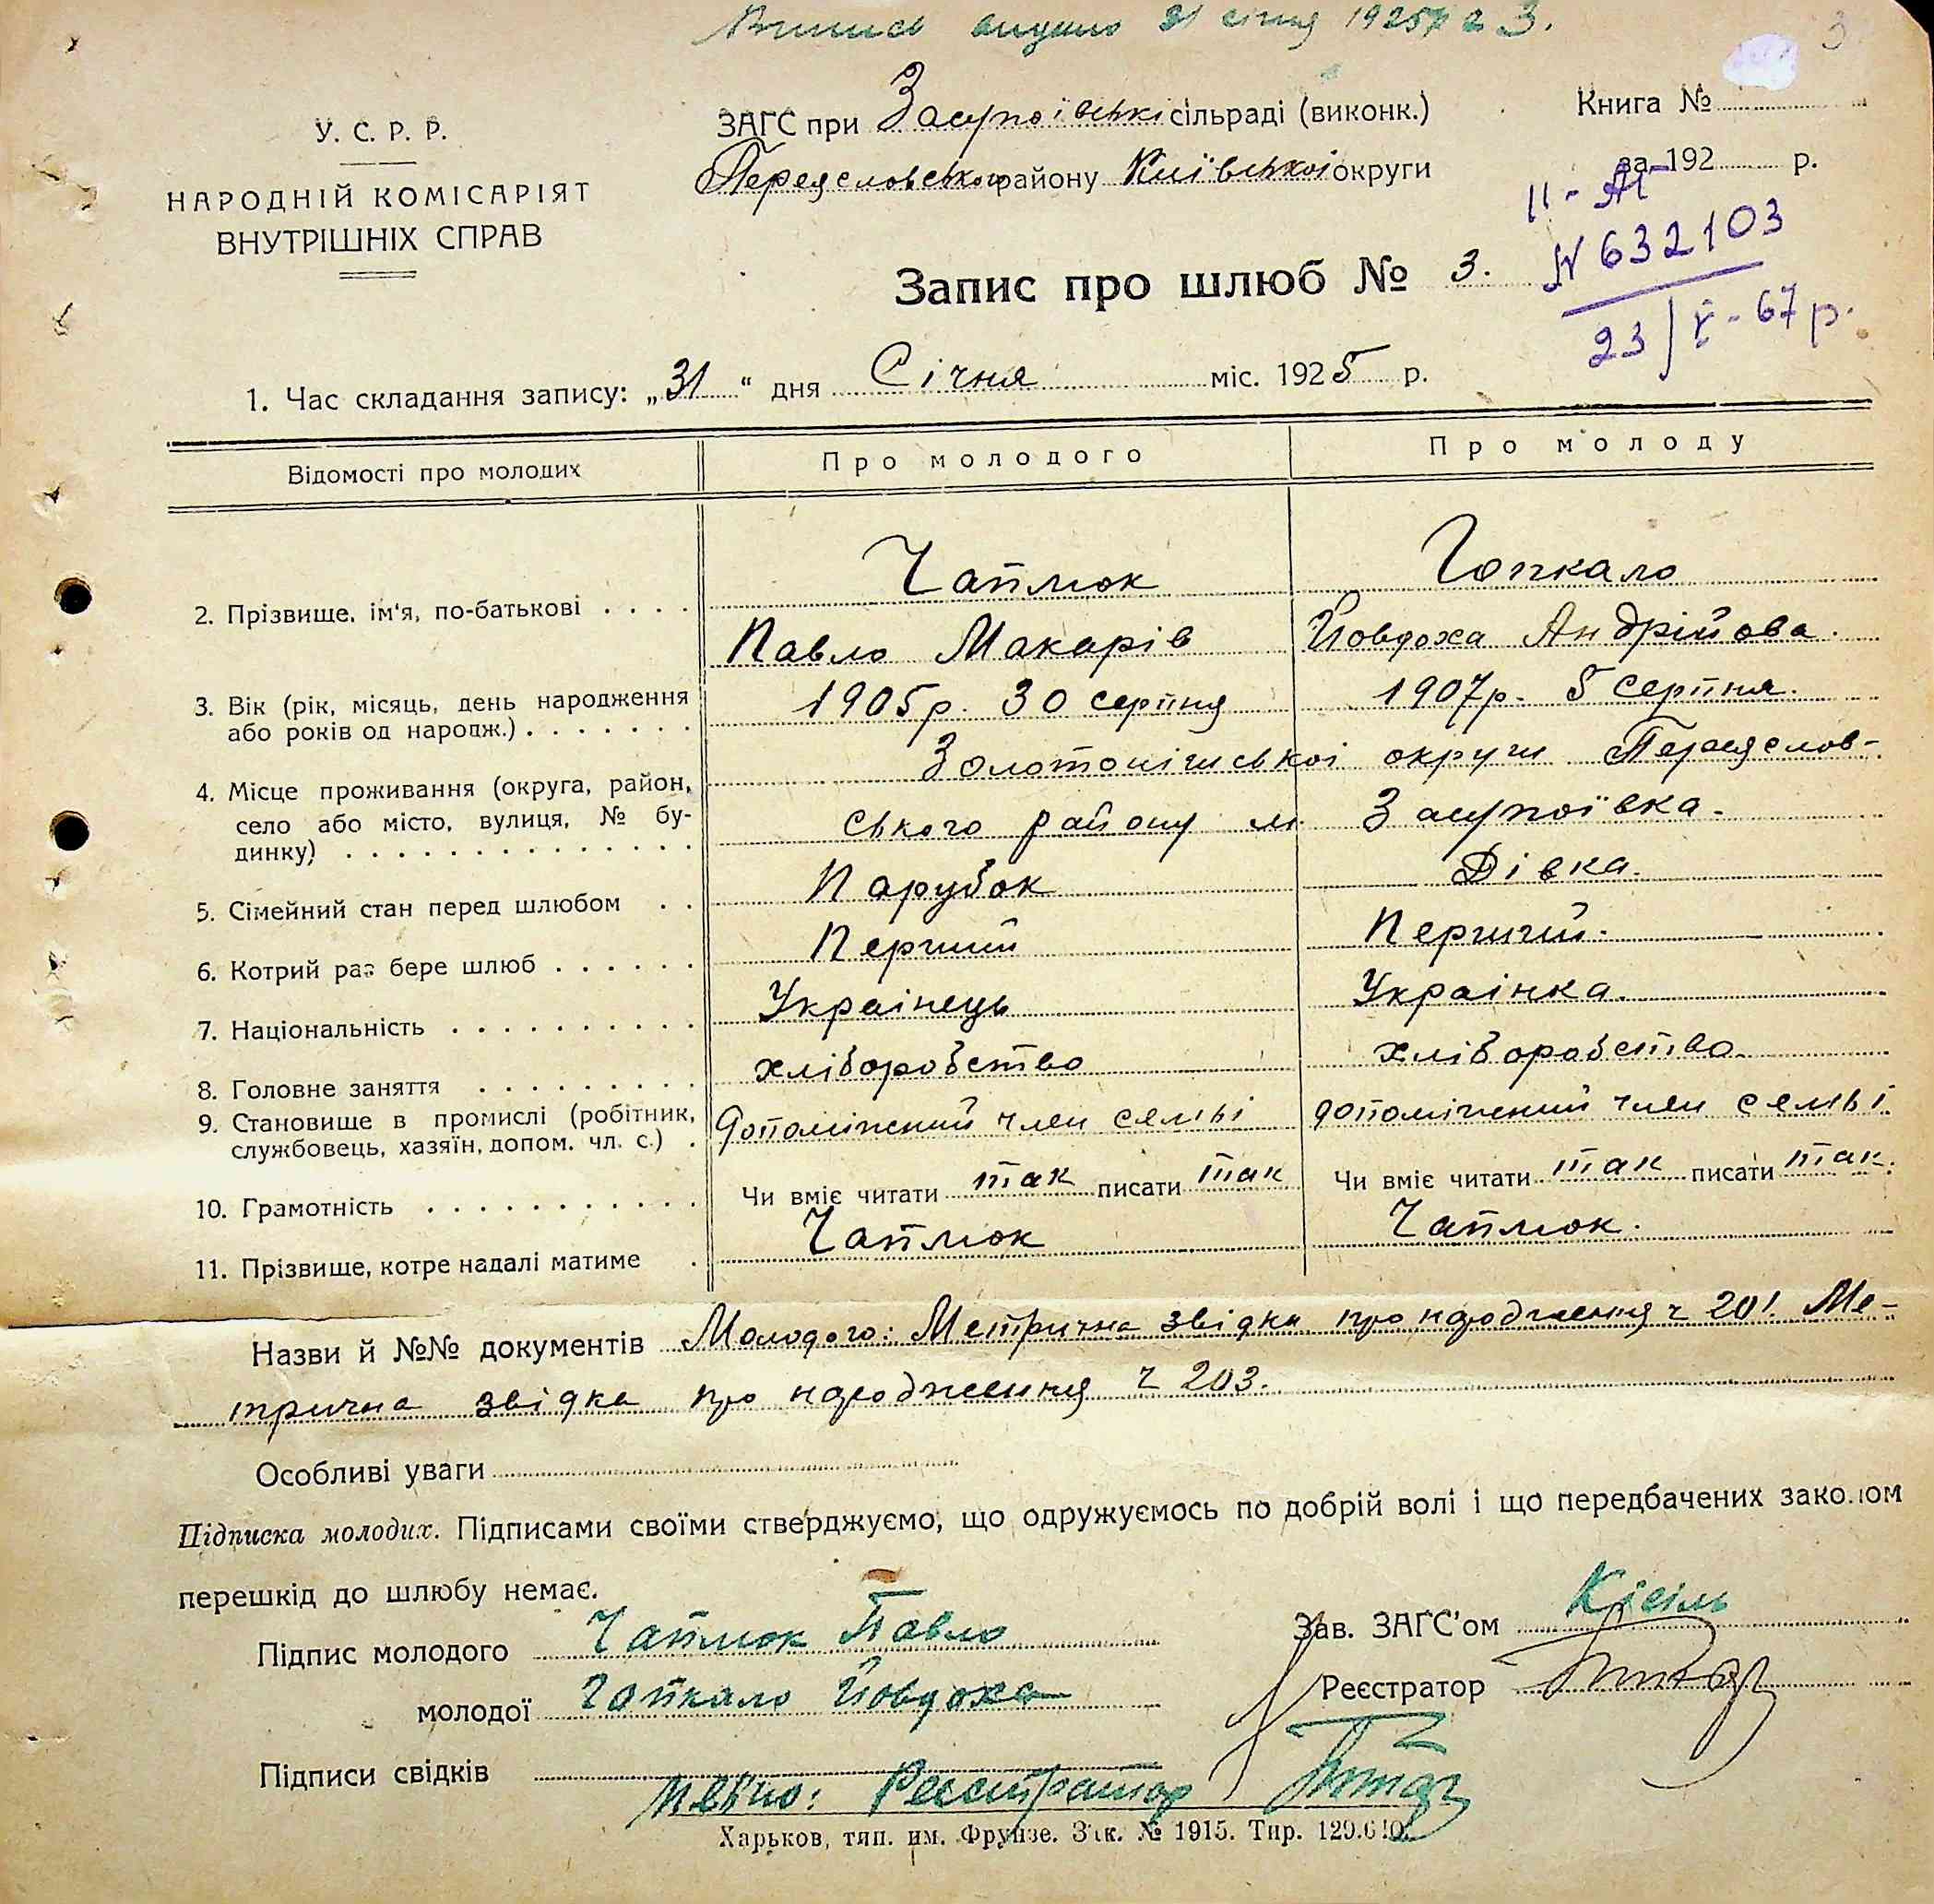 Випись видано 31 січня 1925 р. з 3.
3
У. С. Р. Р.
НАРОДНІЙ КОМІСАРІЯТ
ВНУТРІШНІХ СПРАВ
ЗАГС при Засупоївські сільраді (виконк.)
Переяславського району Київської округи
Книга №
за 192 р.
II-АГ
N 632103
23/V-67 р.
Запис про шлюб № 3.
1. Час складання запису: „31“ дня Січня міс. 1925 р.
Відомості про молодих
Про молодого
Про молоду
2. Прізвище, ім'я, по-батькові
Чаплюк
Павло Макарів
Гопкало
Йовдоха Андрійова.
3. Вік (рік, місяць, день народження
або років од народж.)
1905р. 30 серпня
1907р. 5 серпня.
4. Місце проживання (округа, район,
село або місто, вулиця, № бу-
динку)
Золотоніської округи Переяслов-
ського району м. Засупоївка.
5. Сімейний стан перед шлюбом
Парубок
Дівка.
6. Котрий раз бере шлюб
Перший
Перший.
7. Національність
Украінець
Украінка.
8. Головне заняття
хліборобство
хліборобство.
9. Становище в промислі (робітник,
службовець, хазяїн, допом. чл. с.)
допоміжний член семьі
допоміжний член семьі.
10. Грамотність
Чи вміє читати так писати так
Чи вміє читати так писати так.
11. Прізвище, котре надалі матиме
Чаплюк
Чаплюк.
Назви й №№ документів Молодого: Метрична звідка про народження ч 201. Ме-
трична звідка про народження ч 203.
Особливі уваги
Підписка молодих. Підписами своїми стверджуємо, що одружуємось по добрій волі і що передбачених законом
перешкід до шлюбу немає.
Підпис молодого Чаплюк Павло
молодої Гопкало Йовдоха
Підписи свідків
Зав. ЗАГС'ом Кісіль
Реєстратор
Певно: Реєстратор
Харьков, тип. им. Фрунзе. Зак. № 1915. Тир. 129.600.